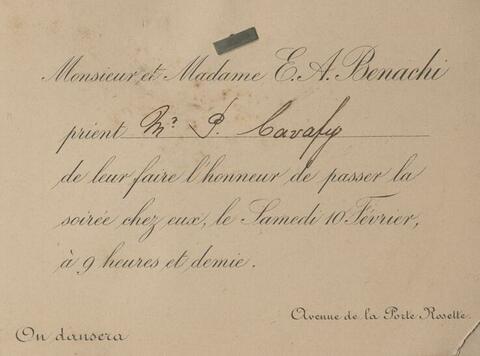 Monsieur et Madame E. A. Benachi
prient Mr. P. Cavafy
de leur faire l'honneur de passer la
soirée chez eux, le Samedi 10 Février,
à 9 heures et demie.
Avenue de la Porte Rosette.
On dansera